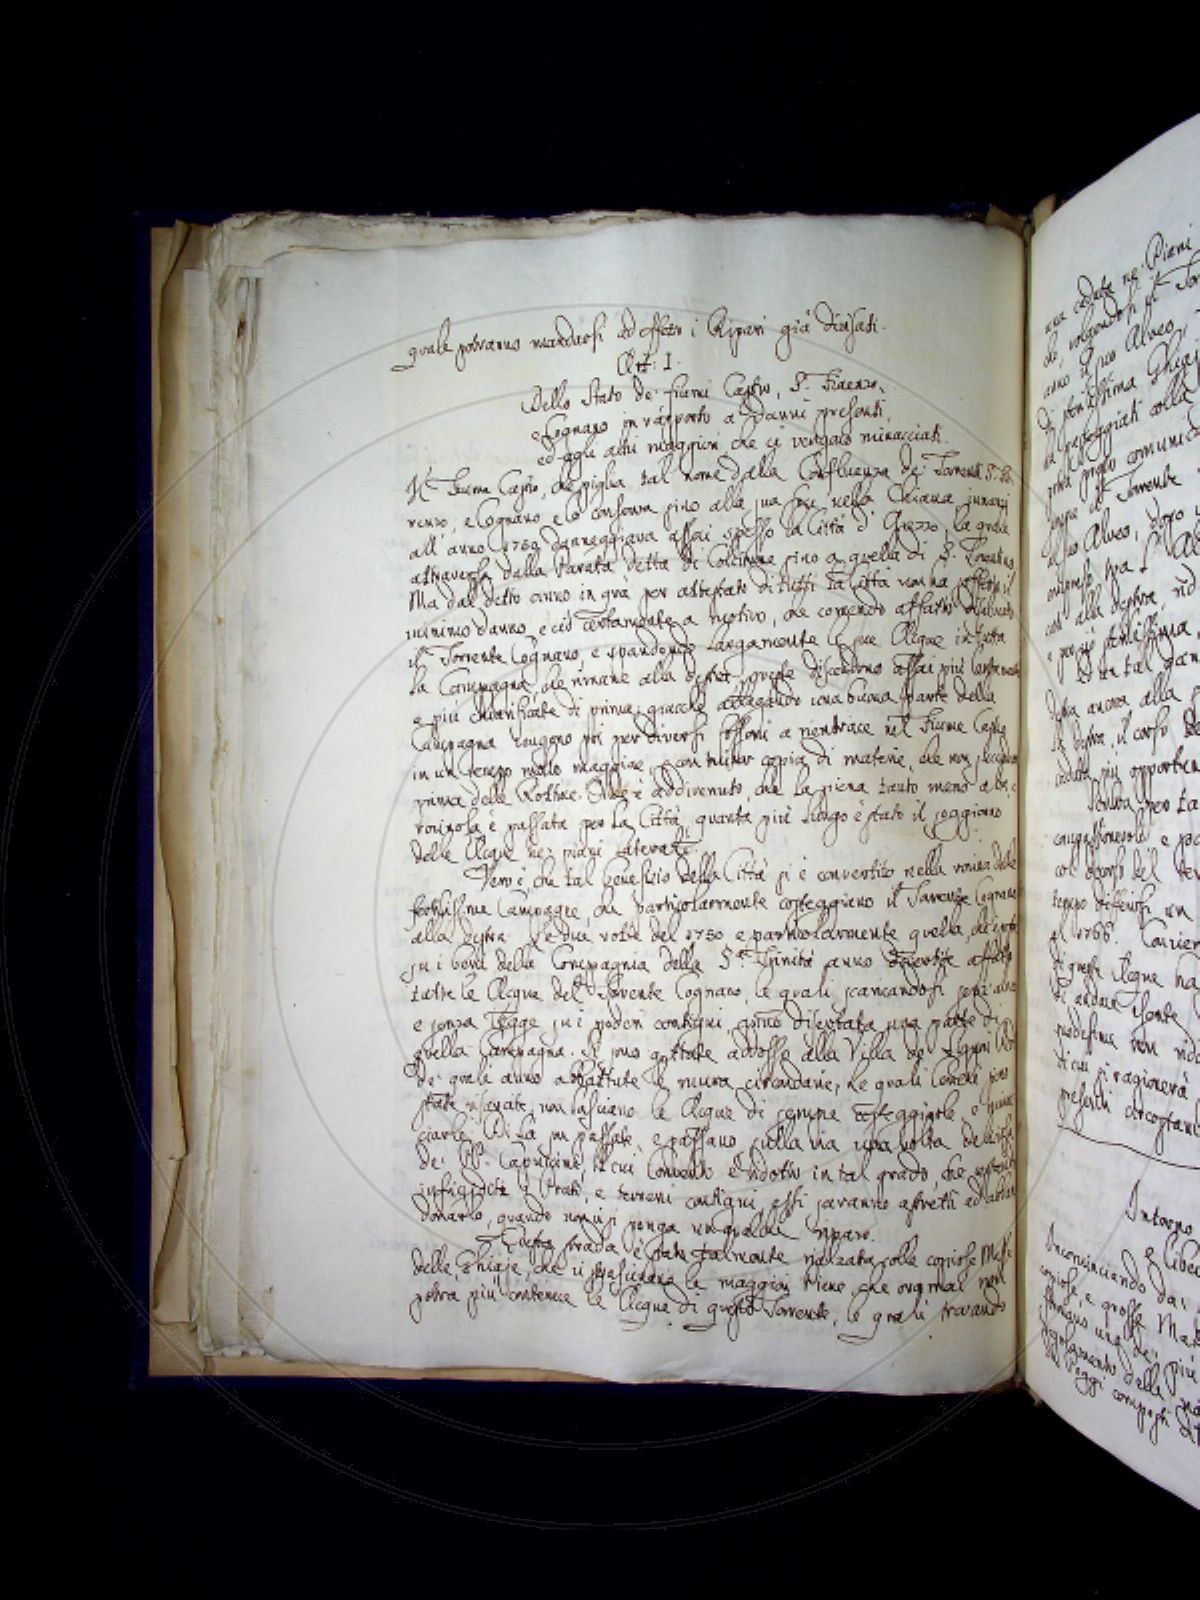 quale potranno mandarsi ad effetto i Ripari già divisati.
Art: I.
Dello Stato de' fiumi Castro, S. Fiorenzo,
e Cognano in rapporto a' danni presenti,
ed agli altri maggiori, che ci vengano minacciati.
Il Fiume Castro, che piglia tal nome dalla Confluenza de' Torrenti S. Fio-
renzo, e Cognano, e lo conserva fino alla sua foce nella Chiana innanzi
all'anno 1750 danneggiava assai spesso la Città d'Arezzo, la quale
attraversa dalla Parata detta di Colcitrone fino a quella di S. Lorentino.
Ma dal detto anno in quà per attestato di tutti la Città non ha sofferto il
minimo danno, e ciò certamente a motivo, che correndo affatto disalveato
il Torrente Cognano, e spandendo largamente le sue Acque in tutta
la Campagna, che rimane alla destra, queste discendono assai più lentamente
e più chiarificate di prima; giacchè allagando una buona parte della
Campagna vengono poi per diversi fossoni a rientrare nel Fiume Castro
in un tempo molto maggiore, e con minor copia di materie, che non succedeva
prima delle Rotture. Indi è addivenuto, che la piena tanto meno alta, e
rovinosa è passata per la Città, quanto più lungo è stato il soggiorno
delle Acque ne' piani laterali.
Vero è, che tal beneficio della Città si è convertito nella rovina delle
fertilissime Campagne, che particolarmente costeggiano il Torrente Cognano
alla destra. Le due rotte del 1750 e particolarmente quella, che
su i beni della Compagnia della SS. Trinità anno divertite affatto
tutte le Acque del Torrente Cognano, le quali scaricandosi senz'alveo
e senza legge su i poderi contigui, anno disertata una parte di
quella Campagna. Si sono gettate addosso alla Villa de' Signori
de' quali anno abbattute le mura circondarie, le quali benchè sino
state risarcite, non lasciano le Acque di sempre costeggiarle, e minac-
ciarle. Di là son passate, e passano sulla via una volta
de' PP. Capuccini, il cui Convento è ridotto in tal grado, che essendo
infrigiditi i Prati, e terreni contigui, essi saranno astretti ad abban-
donarlo, quando non vi si ponga un qualche riparo.
Questa strada è stata talmente rialzata colle copiose Masse
delle Ghiaje, che vi strascinano le maggiori Piene, che oramai non
potrà più contenere le Acque di questo Torrente, le quali trovando
una caduta ne' Piani
anno il suo Alveo,
di sterilissima Ghiaja
da pareggiati colla
Torrente
suo Alveo, dopo
e perciò sterilissima
Ed in tal
ancora alla
la destra, il corso
caduta più opportuna
Sembra per ta
compassionevole
un
al 1766.
di queste Acque ha
di andare esente
medesima non
di cui si ragionerà
presenti
Intorno
e liber
Incominciando dai
copiose, e grosse
uno dei più
composti